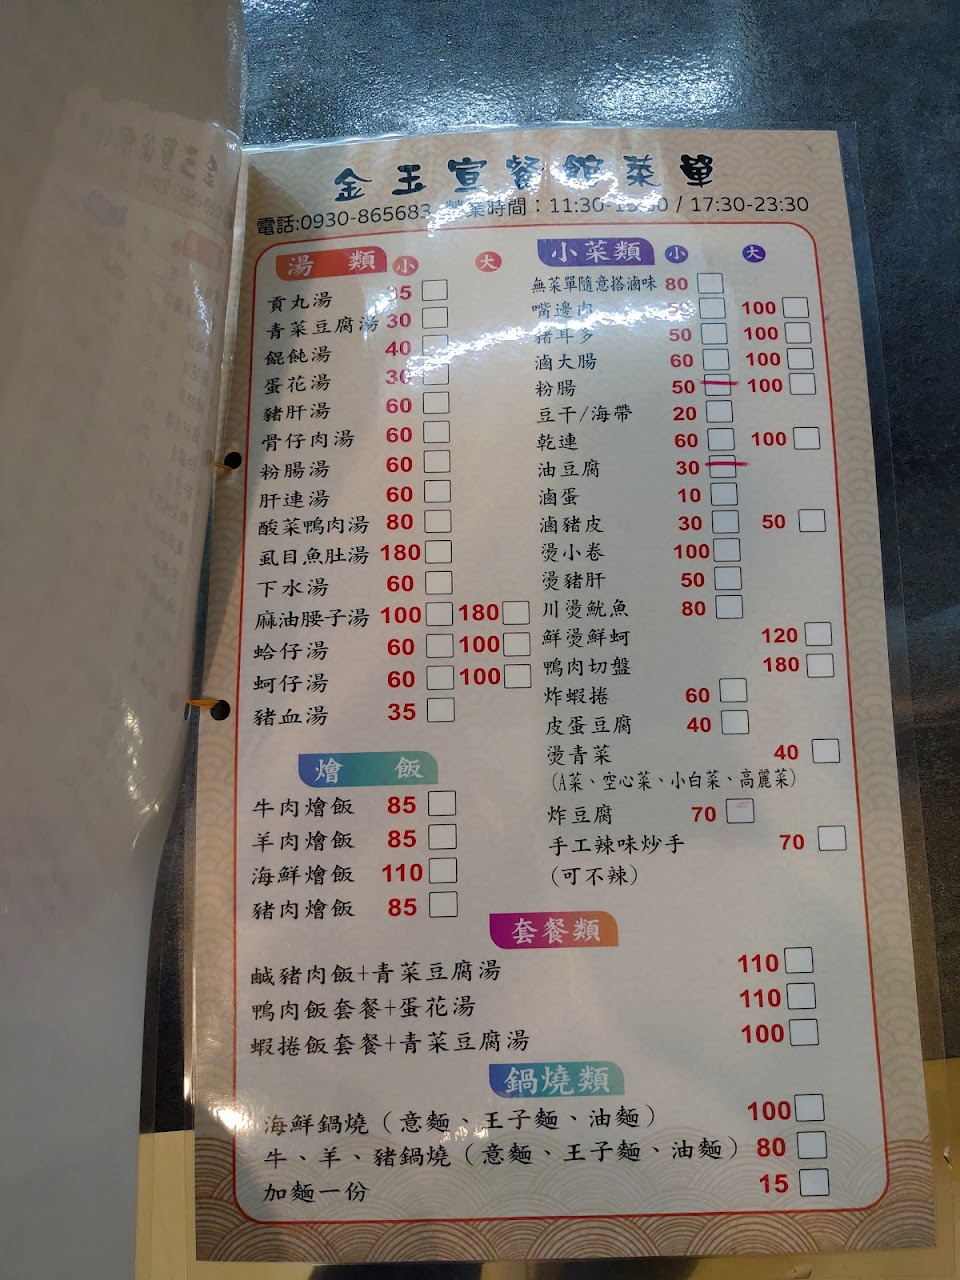 金玉宣餐館菜單
電話:0930-865683 營業時間：11:30-13:30 / 17:30-23:30
湯 類 小 大
貢丸湯
青菜豆腐湯 30
餛飩湯 40
蛋花湯 30
豬肝湯 60
骨仔肉湯 60
粉腸湯 60
肝連湯 60
酸菜鴨肉湯 80
虱目魚肚湯 180
下水湯 60
麻油腰子湯 100 180
蛤仔湯 60 100
蚵仔湯 60 100
豬血湯 35
燴 飯
牛肉燴飯 85
羊肉燴飯 85
海鮮燴飯 110
豬肉燴飯 85
小菜類 小 大
無菜單隨意搭滷味 80
嘴邊肉 50 100
豬耳多 50 100
滷大腸 60 100
粉腸 50 100
豆干/海帶 20
乾連 60 100
油豆腐 30
滷蛋 10
滷豬皮 30 50
燙小卷 100
燙豬肝 50
川燙魷魚 80
鮮燙鮮蚵 120
鴨肉切盤 180
炸蝦捲 60
皮蛋豆腐 40
燙青菜 40
(A菜、空心菜、小白菜、高麗菜)
炸豆腐 70
手工辣味炒手 70
(可不辣)
套餐類
鹹豬肉飯+青菜豆腐湯 110
鴨肉飯套餐+蛋花湯 110
蝦捲飯套餐+青菜豆腐湯 100
鍋燒類
海鮮鍋燒（意麵、王子麵、油麵） 100
牛、羊、豬鍋燒（意麵、王子麵、油麵） 80
加麵一份 15